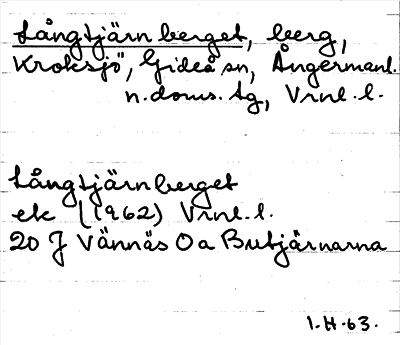 Långtjärnberget, berg,
Kroksjö", Gideå sn, Ångermanl.
n.doms. tg, Vrnl. l.
Långtjärnberget
ek (1962) Vrnl. l.
20 J Vännäs 0 a Butjärnarna
1.H.63.